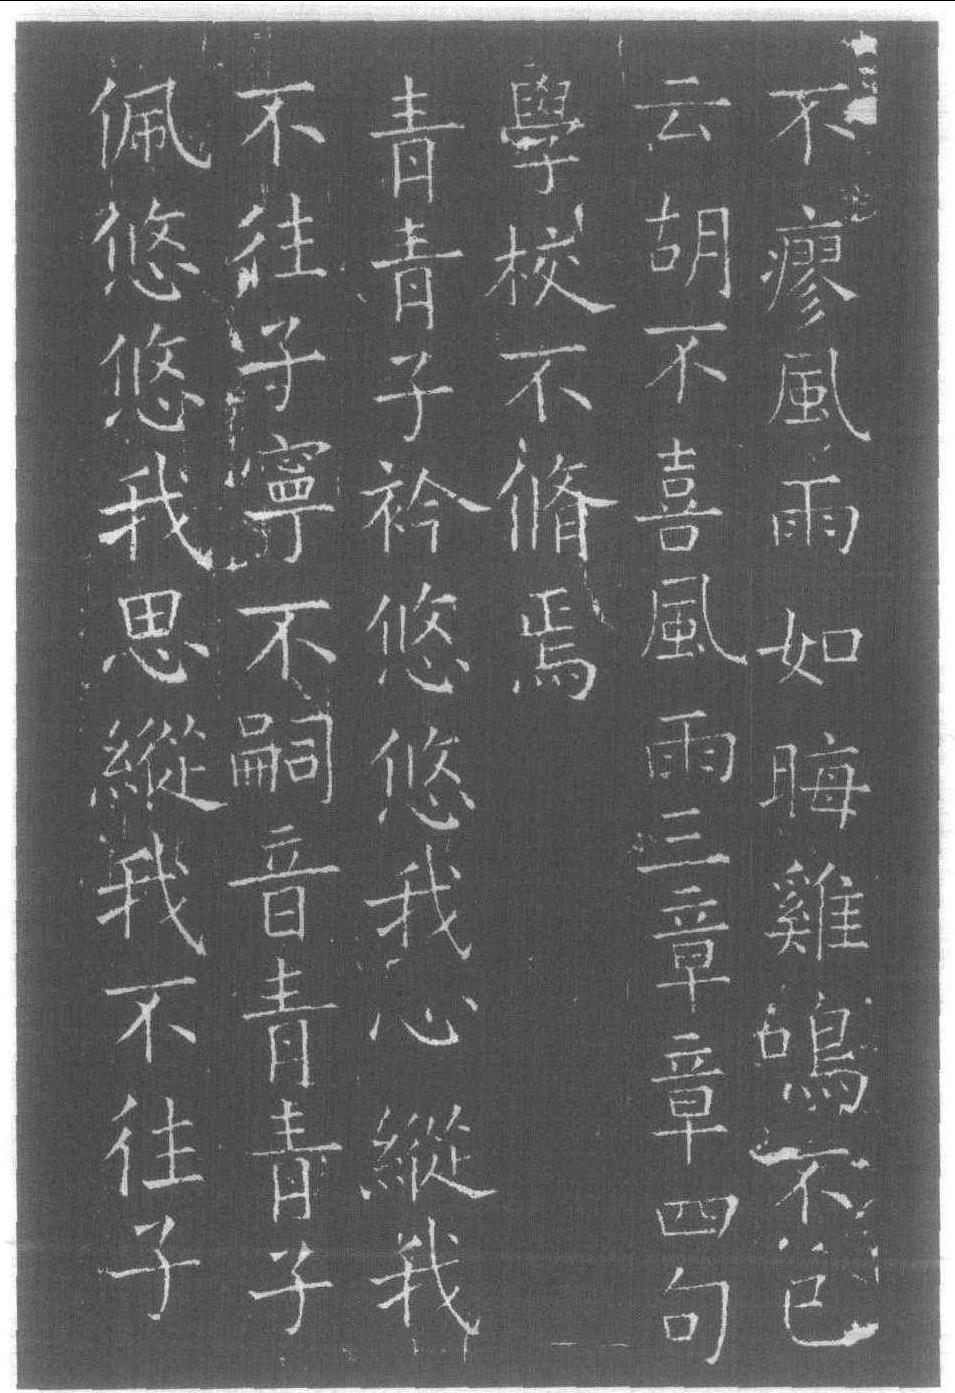 不瘳風雨如晦雞鳴不已
云胡不喜風雨三章章四句
學校不脩焉
青青子衿悠悠我心縱我
不往子寧不嗣音青青子
佩悠悠我思縱我不往子